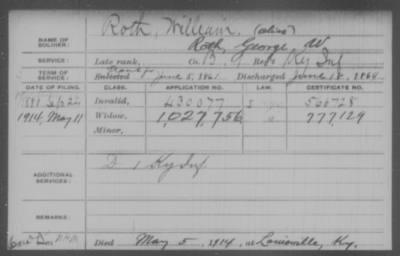 Roth, William (alias)
NAME OF SOLDIER: Roth, George, W
SERVICE: Late rank, Co. B, Reg't Ky Inf
TERM OF SERVICE: Enlisted June 5, 1861 Discharged June 18, 1864
DATE OF FILING. CLASS. APPLICATION NO. LAW. CERTIFICATE NO.
Invalid, 430077
1914, May 11 Widow, 1,027,756 777,129
Minor,
ADDITIONAL SERVICES: D 1 Ky Inf.
REMARKS:
Died May 5, 1914, at Louisville, Ky.